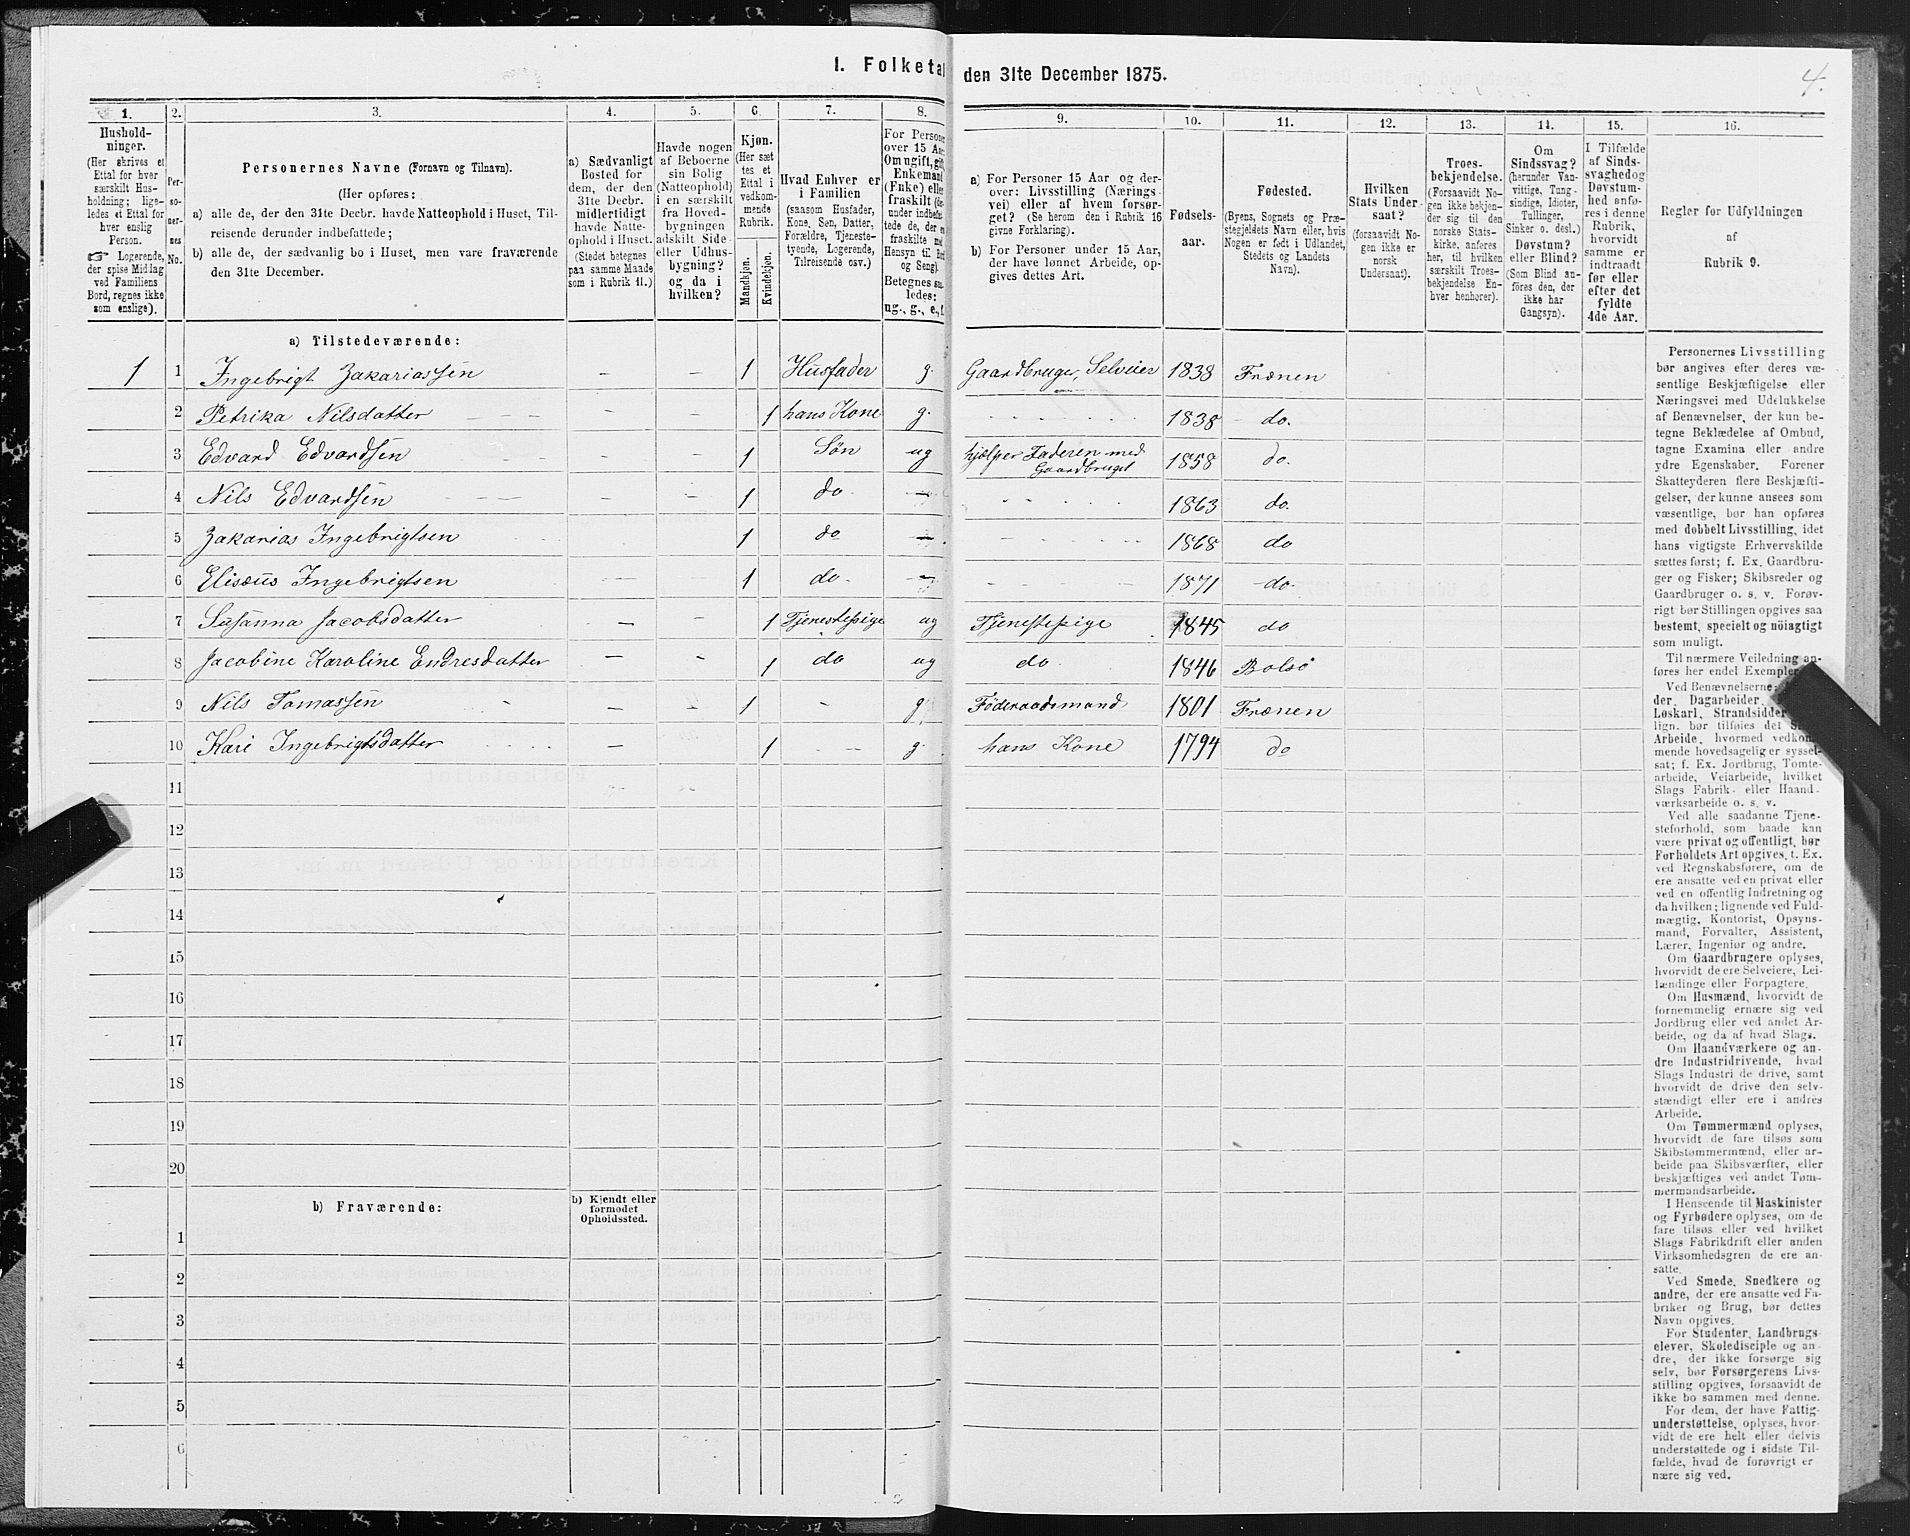 I. Folketal den 31te December 1875.
4.
1.
Hushold-
ninger.
(Her skrives et
Ettal for hver
særskilt Hus-
holdning; lige-
ledes et Ettal for
hver enslig
Person.
Logerende,
der spise Middag
ved Familiens
Bord, regnes ikke
som enslige).
2.
Per-
so-
ner-
nes
No.
3.
Personernes Navne (Fornavn og Tilnavn).
(Her opføres:
a) alle de, der den 31te Decbr. havde Natteophold i Huset, Til-
reisende derunder indbefattede;
b) alle de, der sædvanlig bo i Huset, men vare fraværende
den 31te December.
4.
a) Sædvanligt
Bosted for
dem, der den
31te Decbr.
midlertidigt
havde Natte-
ophold i Huset.
(Stedet betegnes
paa samme Maade
som i Rubrik 11.)
5.
Havde nogen
af Beboerne
sin Bolig
(Natteophold)
i en særskilt
fra Hoved-
bygningen
adskilt Side-
eller Udhus-
bygning?
og da i
hvilken?
6.
Kjøn.
(Her sæt-
tes et
Ettal i
vedkom-
mende
Rubrik.
Mandkjøn.
Kvindekjøn.
7.
Hvad Enhver er
i Familien
(saasom Husfader,
Kone, Søn, Datter,
Forældre, Tjeneste-
tyende, Logerende,
Tilreisende osv.)
8.
For Personer
over 15 Aar:
Om ugift, gift,
Enkemand
(Enke) eller
fraskilt (der-
under indbefat-
tede de, der ere
fraskilte med
Hensyn til Bord
og Seng).
Betegnes saa-
ledes:
ug., g., e., f.
9.
a) For Personer 15 Aar og der-
over: Livsstilling (Nærings-
vei) eller af hvem forsør-
get? (Se herom den i Rubrik 16
givne Forklaring).
b) For Personer under 15 Aar,
der have lønnet Arbeide, op-
gives dettes Art.
10.
Fødsels-
aar.
11.
Fødested.
(Byens, Sognets og Præ-
stegjeldets Navn eller, hvis
Nogen er født i Udlandet,
Stedets og Landets
Navn).
12.
Hvilken
Stats Under-
saat?
(forsaavidt No-
gen ikke er
norsk
Undersaat).
13.
Troes-
bekjendelse.
(Forsaavidt No-
gen ikke bekjen-
der sig til den
norske Stats-
kirke, anføres
her, til hvilken
særskilt Troes-
bekjendelse En-
hver henhører).
14.
Om
Sindssvag?
(herunder Van-
vittige, Tung-
sindige, Idioter,
Tullinger,
Sinker o. desl.)
Døvstum?
eller Blind?
(Som Blind an-
føres den, der
ikke har
Gangsyn).
15.
I Tilfælde
af Sinds-
svaghed og
Døvstum-
hed anfø-
res i denne
Rubrik,
hvorvidt
samme er
indtraadt
før eller
efter det
fyldte
4de Aar.
16.
Regler for Udfyldningen
af
Rubrik 9.
a) Tilstedeværende:
1 1 Ingebrigt Zakariassen – – 1 Husfader g. Gaardbruger, Selveier 1838 Frænen
2 Petrika Nilsdatter – – 1 hans Kone g. 1838 do.
3 Edvard Edvardsen – – 1 Søn ug hjælper Faderen med
Gaardbruget 1858 do.
4 Nils Edvardsen – – 1 do – 1863 do.
5 Zakarias Ingebrigtsen – – 1 do – 1868 do
6 Elisæus Ingebrigtsen – – 1 do – 1871 do.
7 Susanna Jacobsdatter – – 1 Tjenestepige ug Tjenestepige 1845 do
8 Jacobine Karoline Endresdatter – – 1 do ug do 1846 Bolsø
9 Nils Tomassen – – 1 – g. Föderaadsmand 1801 Frænen
10 Kari Ingebrigtsdatter – 1 – g. hans Kone 1794 do
11
12
13
14
15
16
17
18
19
20
b) Fraværende:
b) Kjendt eller
formodet
Opholdssted.
1
2
3
4
5
6
Personernes Livsstilling
bør angives efter deres væ-
sentlige Beskjæftigelse eller
Næringsvei med Udelukkelse
af Benævnelser, der kun be-
tegne Beklædelse af Ombud,
tagne Examina eller andre
ydre Egenskaber. Forener
Skatteyderen flere Beskjæfti-
gelser, der kunne ansees som
væsentlige, bør han opføres
med dobbelt Livsstilling, idet
hans vigtigste Erhvervskilde
sættes først; f. Ex. Gaardbru-
ger og Fisker; Skibsreder og
Gaardbruger o. s. v. Forøv-
rigt bør Stillingen opgives saa
bestemt, specielt og nøiagtigt
som muligt.
Til nærmere Veiledning an-
føres her endel Exempler
Ved Benævnelserne:
der, Dagarbeider,
Løskarl, Strandsidder
lign. bør tilføies det
Arbeide, hvormed vedkom-
mende hovedsagelig er syssel-
sat; f. Ex. Jordbrug, Tomte-
arbeide, Veiarbeide, hvilket
Slags Fabrik- eller Haand-
værksarbeide o. s. v.
Ved alle saadanne Tjene-
steforhold, som baade kan
være privat og offentligt, bør
Forholdets Art opgives, f. Ex.
ved Regnskabsførere, om de
ere ansatte ved en privat eller
ved en offentlig Indretning og
da hvilken; lignende ved Fuld-
mægtig, Kontorist, Opsyns-
mand, Forvalter, Assistent,
Lærer, Ingeniør og andre.
Om Gaardbrugere oplyses,
hvorvidt de ere Selveiere, Lei-
lændinge eller Forpagtere.
Om Husmænd, hvorvidt de
fornemmelig ernære sig ved
Jordbrug eller ved andet Ar-
beide, og da af hvad Slags.
Om Haandværkere og an-
dre Industridrivende, hvad
Slags Industri de drive, samt
hvorvidt de drive den selv-
stændigt eller ere i andres
Arbeide.
Om Tømmermænd oplyses,
hvorvidt de fare tilsøs som
Skibstømmermænd, eller ar-
beide paa Skibsværfter, eller
beskjæftiges ved andet Tøm-
mermandsarbeide.
I Henseende til Maskinister
og Fyrbødere oplyses, om de
fare tilsøs eller ved hvilket
Slags Fabrikdrift eller anden
Virksomhedsgren de ere an-
satte.
Ved Smede, Snedkere og
andre, der ere ansatte ved Fa-
briker og Brug, bør dettes
Navn opgives.
For Studenter, Landbrugs-
elever, Skoledisciple og an-
dre, der ikke forsørge sig
selv, bør Forsørgerens Livs-
stilling opgives, forsaavidt de
ikke bo sammen med denne.
For dem, der have Fattig-
understøttelse, oplyses, hvor-
vidt de ere helt eller delvis
understøttede og i sidste Til-
fælde, hvad de forøvrigt er
nære sig ved.